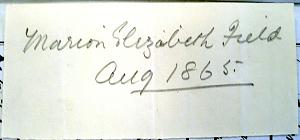 Marion Elizabeth Field
Aug 1865.